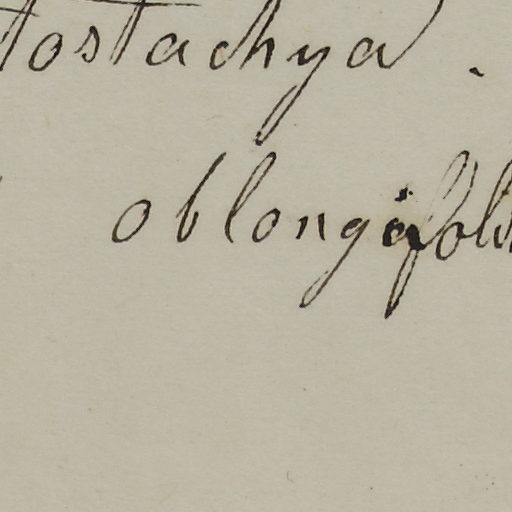 tostachya.
oblongifoli